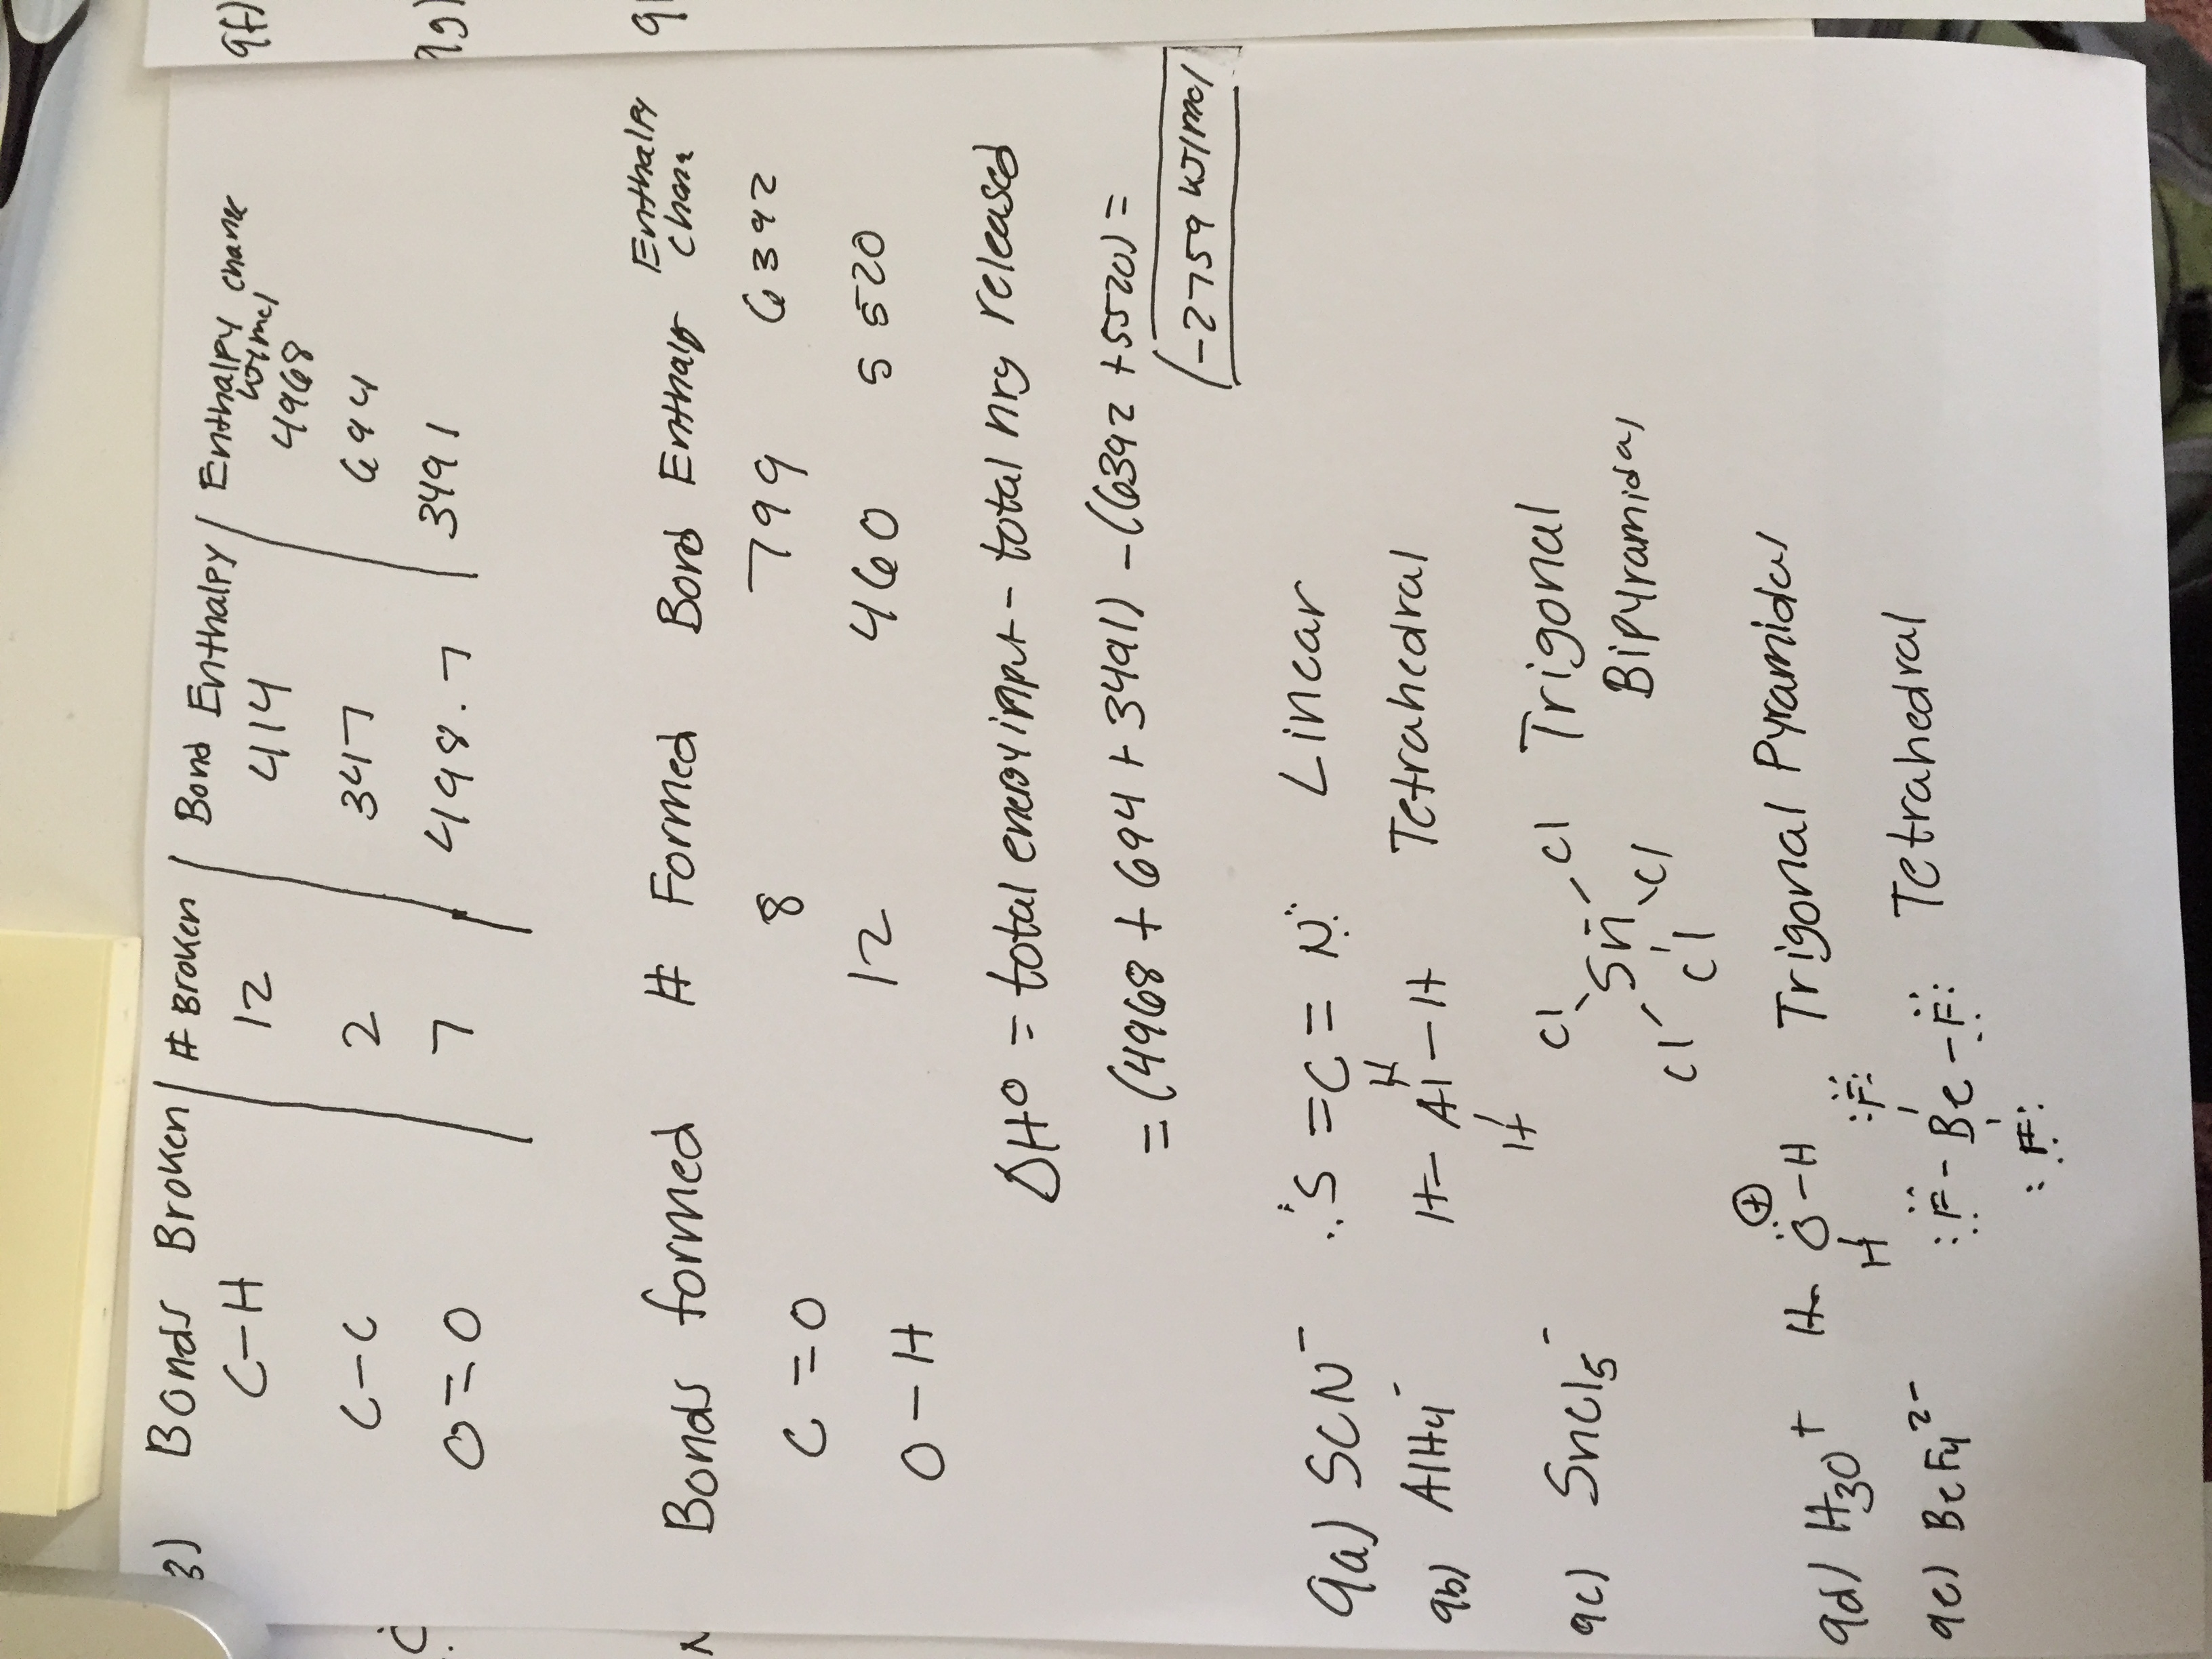 3) Bonds Broken | # Broken | Bond Enthalpy | Enthalpy change
kJ/mol
C-H 12 414 4968
C-C 2 347 694
O=O 7 498.7 3491
Bonds formed # Formed Bond Enthalpy Enthalpy
C=O 8 799 6392
O-H 12 460 5520
ΔH° = total energy input - total nrg released
= (4968 + 694 + 3491) - (6392 + 5520) =
(-2759 kJ/mol
9a) SCN⁻ :S̈=C=N̈: Linear
9b) AlH4⁻ H-Al-H Tetrahedral
H
H
9c) SnCl5⁻ Cl Cl Trigonal
Sn Bipyramidal
Cl Cl Cl
9d) H3O⁺ H-Ö-H Trigonal Pyramidal
⊕
H
:F̈:
9e) BeF4²⁻ :F̈-Be-F̈: Tetrahedral
:F̈:
9f)
9g)
9